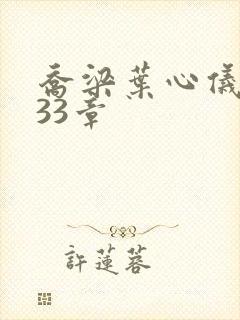 喬梁葉心儀
33章
許蓮蓉